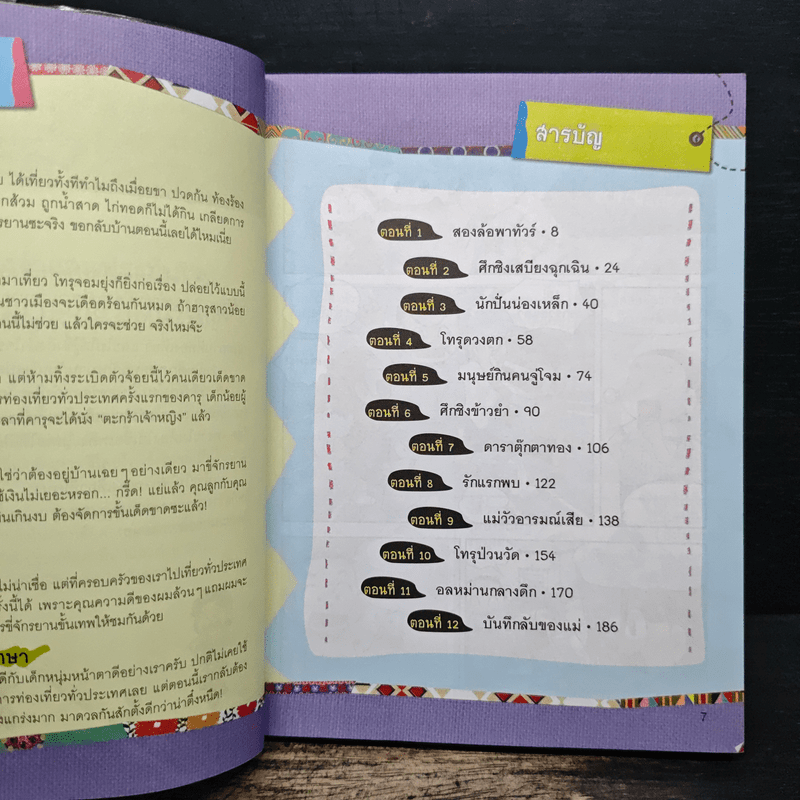 ได้เที่ยวทั้งทีทำไมถึงเมื่อยขา ปวดก้น ท้องร้อง
กส้วม ถูกน้ำสาด ไก่ทอดก็ไม่ได้กิน เกลียดการ
รยานซะจริง ขอกลับบ้านตอนนี้เลยได้ไหมเนี่ย
มาเที่ยว โทรุจอมยุ่งก็ยิ่งก่อเรื่อง ปล่อยไว้แบบนี้
นชาวเมืองจะเดือดร้อนกันหมด ถ้าฮารุสาวน้อย
อนนี้ไม่ช่วย แล้วใครจะช่วย จริงไหมจ๊ะ
แต่ห้ามทิ้งระเบิดตัวจ้อยนี้ไว้คนเดียวเด็ดขาด
รท่องเที่ยวทั่วประเทศครั้งแรกของคารุ เด็กน้อยผู้
ลาที่คารุจะได้นั่ง "ตะกร้าเจ้าหญิง" แล้ว
ใช่ว่าต้องอยู่บ้านเฉยๆ อย่างเดียว มาขี่จักรยาน
ช้เงินไม่เยอะหรอก... กรี๊ด! แย่แล้ว คุณลูกกับคุณ
นเกินงบ ต้องจัดการขั้นเด็ดขาดซะแล้ว!
ไม่น่าเชื่อ แต่ที่ครอบครัวของเราไปเที่ยวทั่วประเทศ
รั้งนี้ได้ เพราะคุณความดีของผมล้วนๆ แถมผมจะ
รขี่จักรยานขั้นเทพให้ชมกันด้วย
าษา
ดีกับเด็กหนุ่มหน้าตาดีอย่างเราครับ ปกติไม่เคยใช้
การท่องเที่ยวทั่วประเทศเลย แต่ตอนนี้เรากลับต้อง
งแกร่งมาก มาดวลกันสักตั้งดีกว่าน่าตึ๋งหนืด!
สารบัญ
ตอนที่ 1 สองล้อพาทัวร์ • 8
ตอนที่ 2 ศึกชิงเสบียงฉุกเฉิน • 24
ตอนที่ 3 นักปั่นน่องเหล็ก • 40
ตอนที่ 4 โทรุดวงตก • 58
ตอนที่ 5 มนุษย์กินคนจู่โจม • 74
ตอนที่ 6 ศึกชิงข้าวยำ • 90
ตอนที่ 7 ดาราตุ๊กตาทอง • 106
ตอนที่ 8 รักแรกพบ • 122
ตอนที่ 9 แม่วัวอารมณ์เสีย • 138
ตอนที่ 10 โทรุป่วนวัด • 154
ตอนที่ 11 อลหม่านกลางดึก • 170
ตอนที่ 12 บันทึกลับของแม่ • 186
7